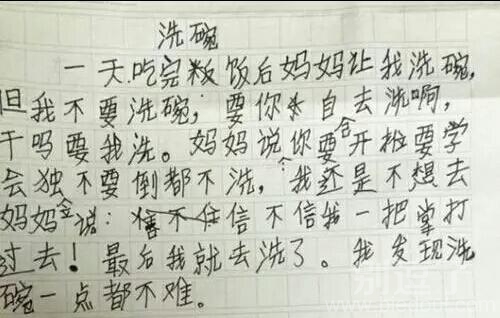 洗碗
一天吃完粄饭后妈妈让我洗碗,
但我不要洗碗，要你自去洗啊,
干吗要我洗。妈妈说你要开始要学
会独不要倒都不洗，我还是不想去
妈妈说：信不信我一把掌打
过去！最后我就去洗了。我发现洗
碗一点都不难。